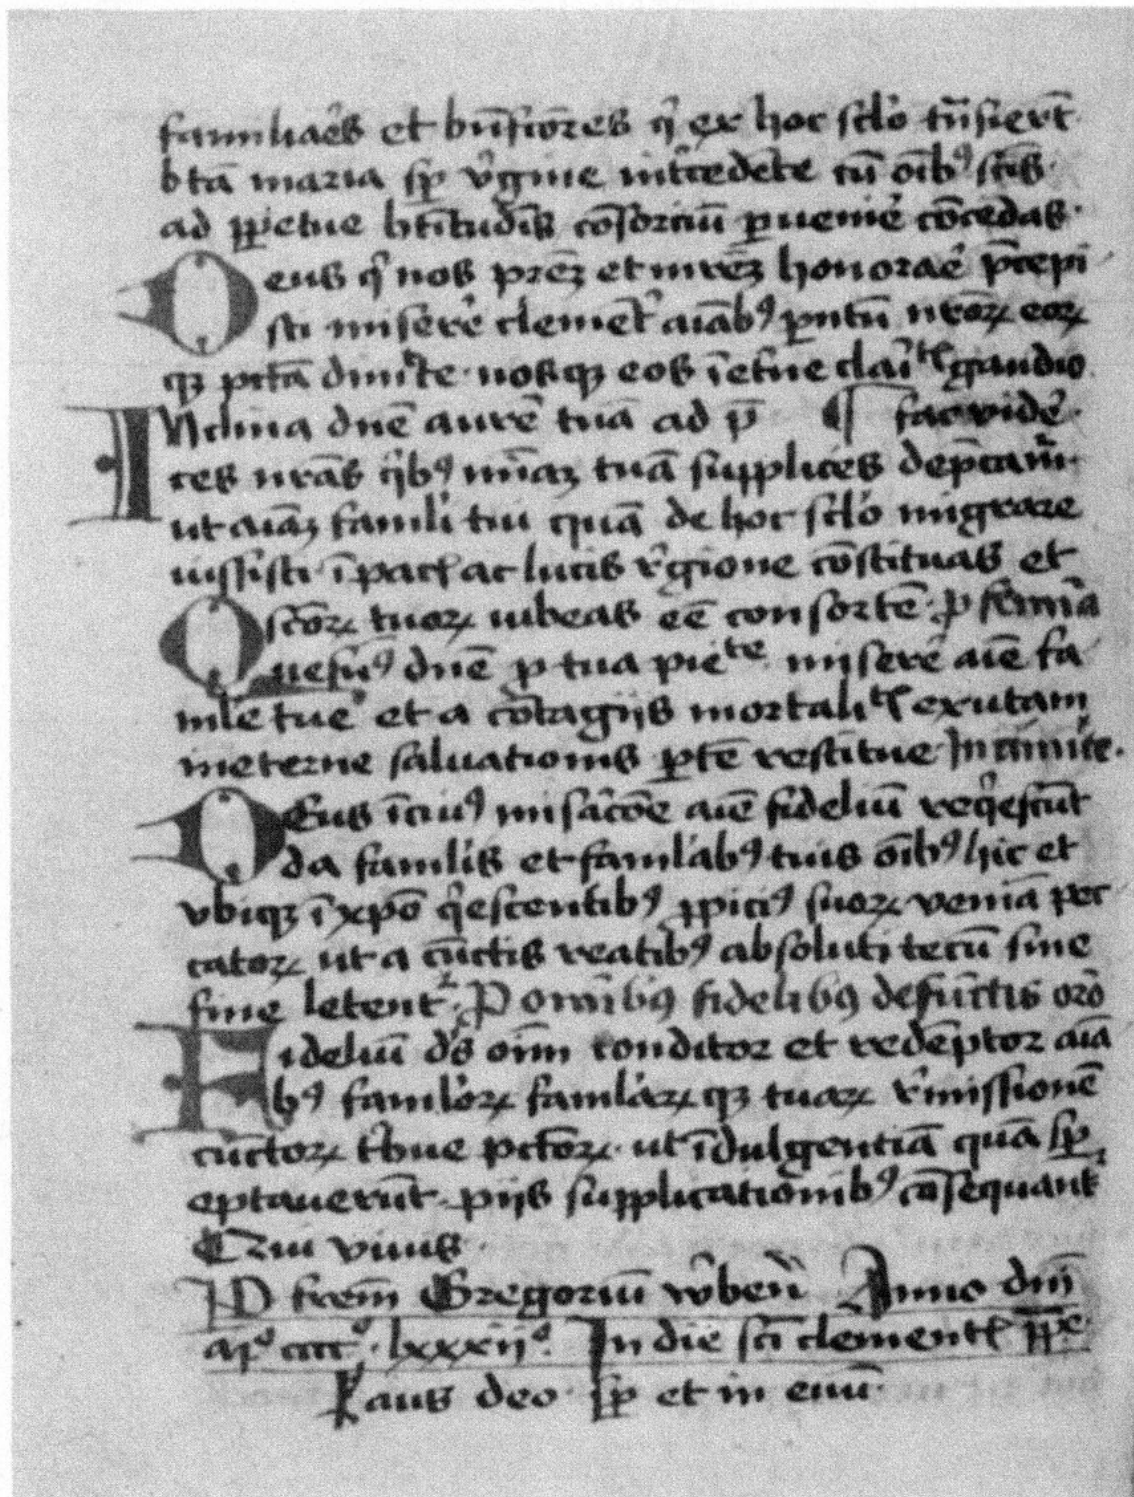 familiaẽs et bñfiores q̃ ex hoc sclo tñsierũt
btã maria sp̃ v̓gine int̓cedẽte cũ oĩbꝰ sc̃is·
ad ꝑpetue btĩtudĩs cõsorciũ ꝑueniẽ cõcedas·
Deus q̓ nos prẽꝫ et mrẽꝫ honoraẽ p̃cepi
sti miserẽ clemẽt̓ aĩabꝰ pñtũ nroꝝ eoꝝ
qꝫ pctã dimitte nosqꝫ eos ĩ et̓ne claĩtꝭ gaudio
Inclina dñe aurẽ tuã ad p̃ ¶ fac vidẽ·
ces nrãs q̓bꝰ mĩaꝫ tuã supplices dep̃camr̃·
ut aĩaꝫ famĩli tui quã de hoc sclo migrare
iussisti ĩ pacꝭ ac lucis r̓gione cõstituas et
sc̃oꝝ tuoꝝ iubeas eẽ consortẽ· ꝓ femĩa
Quesũꝰ dñe ꝓ tua pieᵗᵉ miserẽ aĩe fa
mĩle tue et a cõtagijs mortalitꝭ exutam
in eterne saluationis ꝑtẽ restitue
Deus ĩ cuiꝰ misãcõe aĩe fideliũ req̓escũt
da famĩlis et famĩlabꝰ tuis oĩbꝰ hic et
vbiqꝫ ĩ xp̃o q̓escentibꝰ ꝓpiciꝰ suoꝝ veniã pec
catoꝝ ut a cũctis reatibꝰ absoluti tecũ sine
fine letent̃· P omĩbꝰ fidelibꝰ defũctis orõ
Fideliũ ds̃ oĩm conditor et redẽptor aĩa
bꝰ famĩloꝝ famĩlaꝝ qꝫ tuaꝝ r̓missionẽ
cũctoꝝ t̓bue pctõꝝ· ut ĩdulgentiã quã sp̃
eptauerũt pijs supplicationibꝰ cõsequant̃
Qui viuis·
P frẽm Gregoriũ Anno dñi
mº ccccº· lxxxijº· In die sc̃i clementꝭ pp̃e
Laus deo sp̃ et in euũ·